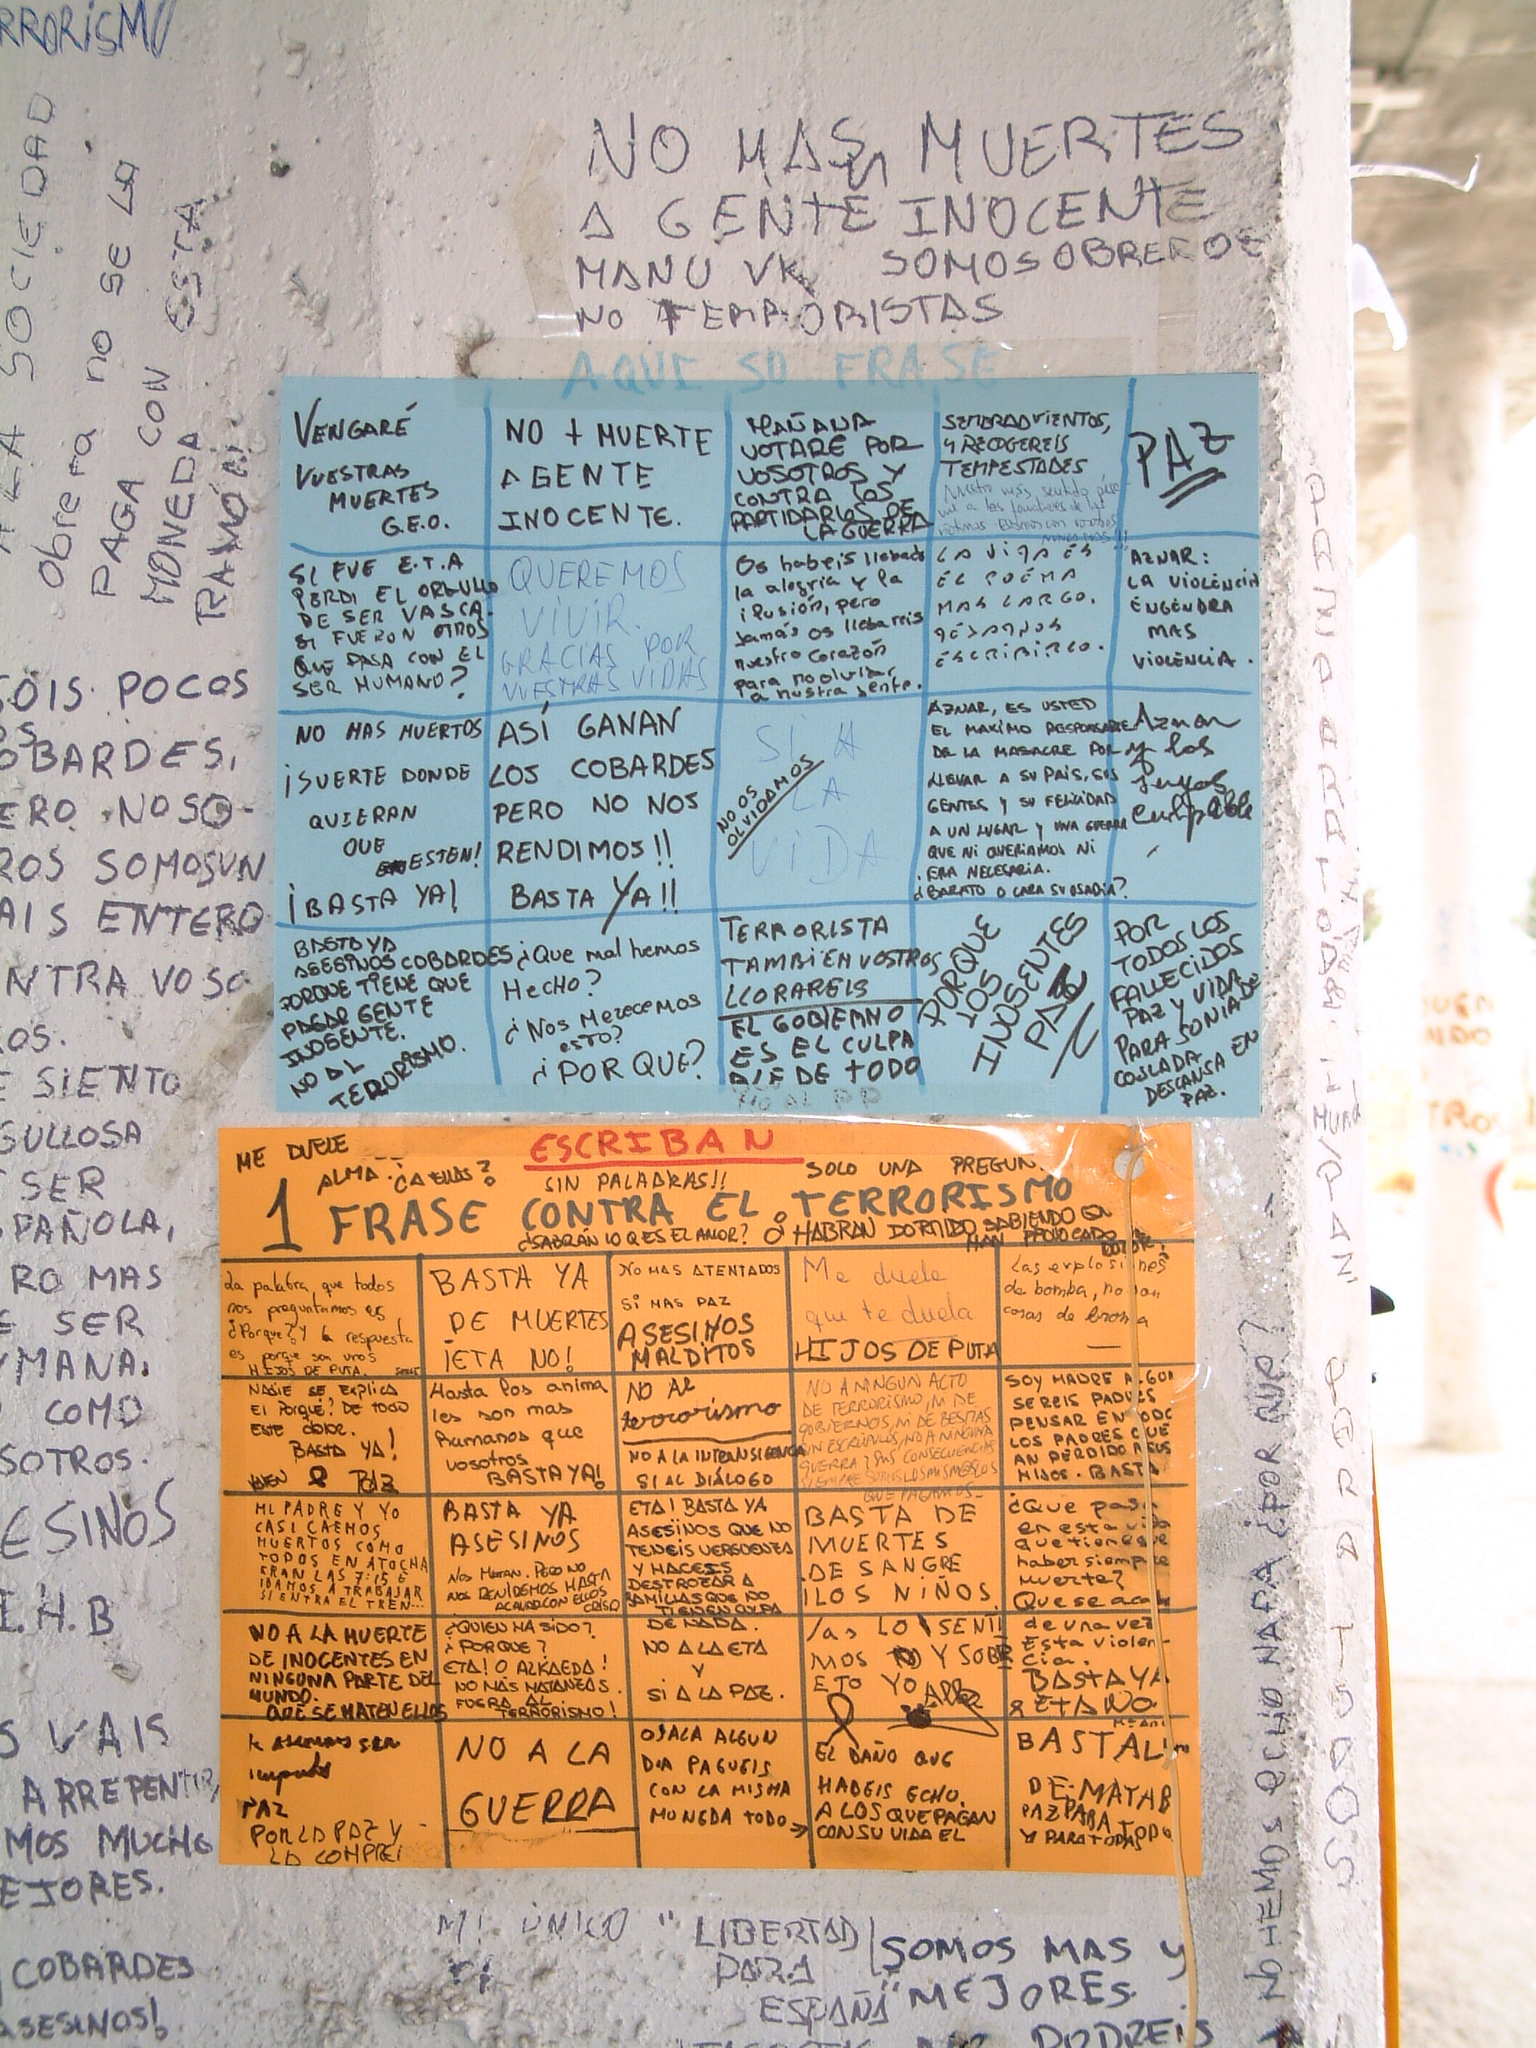 RRORISMO
A LA SOCIEDAD
obrera no se la
PAGA CON ESTA
MONEDA
RAMÓN
NO MAS MUERTES
A GENTE INOCENTE
MANU VK SOMOS OBREROS
NO TERRORISTAS
AQUI SU FRASE
VENGARÉ
VUESTRAS
MUERTES
G.E.O.
NO + MUERTE
A GENTE
INOCENTE.
MAÑANA
VOTARE POR
VOSOTROS Y
CONTRA LOS
PARTIDARIOS DE
LA GUERRA
SEMBRAD VIENTOS,
Y RECOGEREIS
TEMPESTADES
Nuestro más sentido pésa
me a los familiares de las
PAZ
SI FUE E.T.A
PERDI EL ORGULLO
DE SER VASCA.
SI FUERON OTROS
QUE PASA CON EL
SER HUMANO?
QUEREMOS
VIVIR.
GRACIAS POR
VUESTRAS VIDAS
Os habeis llebado
la alegria y la
ilusión, pero
Jamás os llebareis
nuestro corazón
para no olvidar
a nustra jente.
LA VIDA ES
EL POEMA
MAS LARGO.
DEJADNOS
ESCRIBIRLO.
AZNAR:
LA VIOLÈNCIA
ENGENDRA
MAS
VIOLÈNCIA.
NO MAS MUERTOS
¡SUERTE DONDE
QUIERAN
QUE
ESTEN!
¡BASTA YA!
ASÍ GANAN
LOS COBARDES
PERO NO NOS
RENDIMOS!!
BASTA YA!!
SI A
LA
VIDA
NO OS
OLVIDAMOS
AZNAR, ES USTED
EL MAXIMO RESPONSABLE
DE LA MASACRE POR
LLEVAR A SU PAIS, SUS
GENTES Y SU FELICIDAD
A UN LUGAR Y UNA GUERRA
QUE NI QUERIAMOS NI
ERA NECESARIA.
¿BARATO O CARA SU OSADIA?
Aznar
y los
suyos
culpable
BASTA YA
ASESINOS COBARDES
PORQUE TIENE QUE
PAGAR GENTE
INOSENTE.
NO AL
TERORISMO.
¿Que mal hemos
HecHo?
¿Nos Merecemos
esto?
¿PORQUE?
TERRORISTA
TAMBIEN VOSTROS
LLORAREIS
EL GOBIERNO
ES EL CULPA
BLE DE TODO
NO AL PP
PORQUE
LOS
INOSENTES
PAZ
POR
TODOS LOS
FALLECIDOS
PAZ Y VIDA
PARA SONIA DE
COSLADA
DESCANSA EN
PAZ.
ME DUELE
ALMA
ESCRIBAN
SIN PALABRAS!!
SOLO UNA PREGUN
1 FRASE CONTRA EL TERRORISMO
¿SABRÁN LO Q ES EL AMOR?
HABRAN DORMIDO SABIENDO EL
HAN PROVOCADO
DOLOR?
La palabra, que todos
nos preguntamos es
¿Porque? Y la respuesta
es porque son unos
HIJOS DE PUTA.
BASTA YA
DE MUERTES
¡ETA NO!
NO MAS ATENTADOS
SI MAS PAZ
ASESINOS
MALDITOS
Me duele
que te duela
HIJOS DE PUTA
Las explosiones
de bomba, no son
cosas de broma
NADIE SE EXPLICA
El PORQUÉ? DE TODO
ESTE dolor.
BASTA YA!
PAZ
Hasta los anima
les son mas
humanos que
vosotros
BASTA YA!
NO Al
terrorismo
NO A LA INTRANSIGENCIA
SI AL DIÁLOGO
NO A NINGUN ACTO
DE TERRORISMO, NI DE
GOBIERNOS, NI DE BESTIAS
SIN ESCRÚPULOS, NO A NINGUNA
GUERRA Y SUS CONSECUENCIAS
SIEMPRE SOMOS LOS MISMOS LOS
QUE PAGAMOS-
SOY MADRE ALGUN
SEREIS PADRES
PENSAR EN TODOS
LOS PADRES QUE
AN PERDIDO A SUS
HIJOS. BASTA
MI PADRE Y YO
CASI CAEMOS
MUERTOS COMO
TODOS EN ATOCHA
ERAN LAS 7:15 E
IBAMOS A TRABAJAR
SI ENTRA EL TREN...
BASTA YA
ASESINOS
NOS MATAN. PERO NO
NOS RENDIREMOS HASTA
ACABAR CON ELLOS
CRISTO
ETA! BASTA YA
ASESINOS QUE NO
TENEIS VERGUENZA
Y HACEIS
DESTROZAR A
FAMILIAS QUE NO
TIENEN CULPA
DE NADA.
NO A LA ETA
Y
SI A LA PAZ.
BASTA DE
MUERTES
DE SANGRE
¡LOS NIÑOS.
¿Que pasa
en esta vida
que tiene que
haber siempre
muerte?
Que se acabe
de una vez
Esta violen-
cia.
BASTA YA
ETA NO
NO A LA MUERTE
DE INOCENTES EN
NINGUNA PARTE DEL
MUNDO.
QUE SE MATEN ELLOS
¿QUIEN HA SIDO?
¿PORQUE?
ETA! O ALKAEDA!
NO MÁS MATANZAS.
FUERA AL
TERRORISMO!
LO SENTI
MOS Y SOBR
ETO YO
PAZ
POR LA PAZ Y
NO A LA
GUERRA
OJALA ALGUN
DIA PAGUEIS
CON LA MISMA
MONEDA TODO →
EL DAÑO QUE
HABEIS ECHO.
A LOS QUE PAGAN
CON SU VIDA EL
BASTA
DE MATAR
PAZ PARA TODO
Y PARA TODAS
SOIS POCOS
OS
OBARDES,
ERO NOSO-
ROS SOMOS UN
AIS ENTERO
ONTRA VOSO
ROS.
E SIENTO
GULLOSA
SER
SPAÑOLA,
RO MAS
E SER
UMANA.
COMO
SOTROS.
ESINOS
E.H.B
S VAIS
ARREPENTIR,
MOS MUCHO
EJORES.
COBARDES
ASESINOS!
MI UNICO
"LIBERTAD
PARA
ESPAÑA"
SOMOS MAS Y
MEJORES
PODREIS
NO HEMOS ECHO NADA ¿POR QUE?